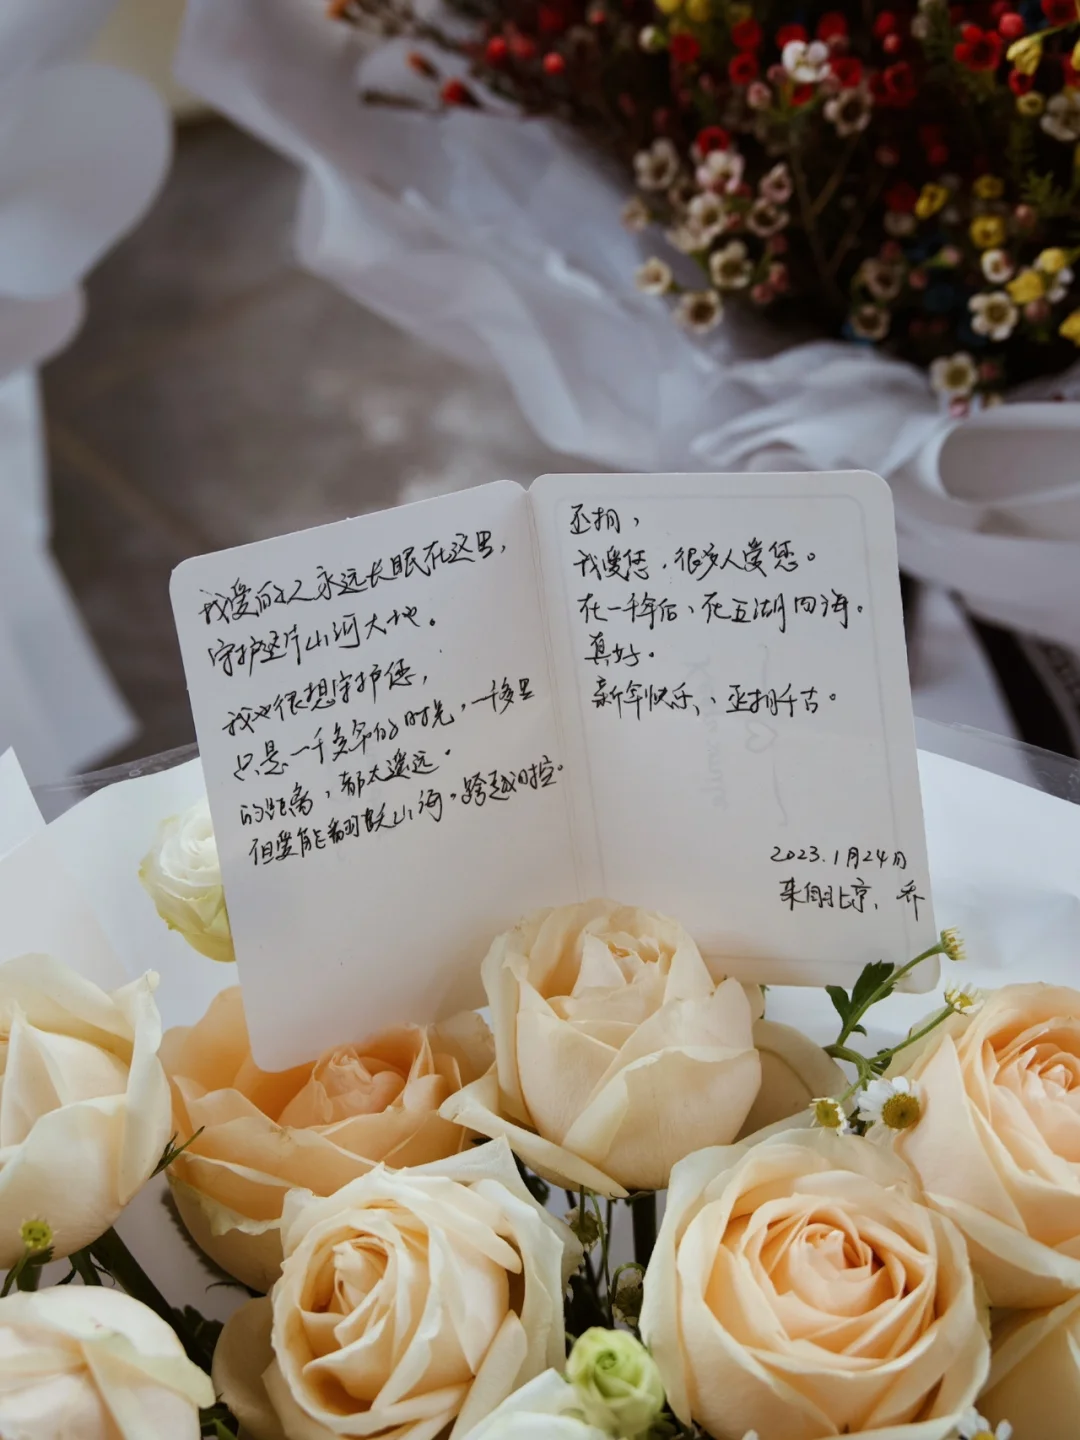 我爱的人永远长眠在这里，
守护这片山河大地。
我也很想守护您，
只是一千多年的时光，一千多里
的距离，都太遥远。
但爱能翻越山海，跨越时空。
丞相，
我爱您，很多人爱您。
在一千年后、在五湖四海。
真好。
新年快乐、丞相千古。
2023.1月24日
来自北京，乔